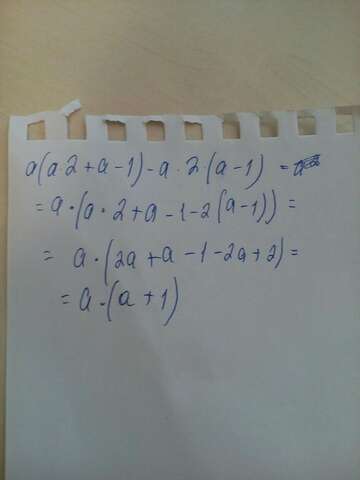 a(a·2+a-1)-a·2·(a-1) =
= a·(a·2+a-1-2(a-1)) =
= a·(2a+a-1-2a+2) =
= a·(a+1)